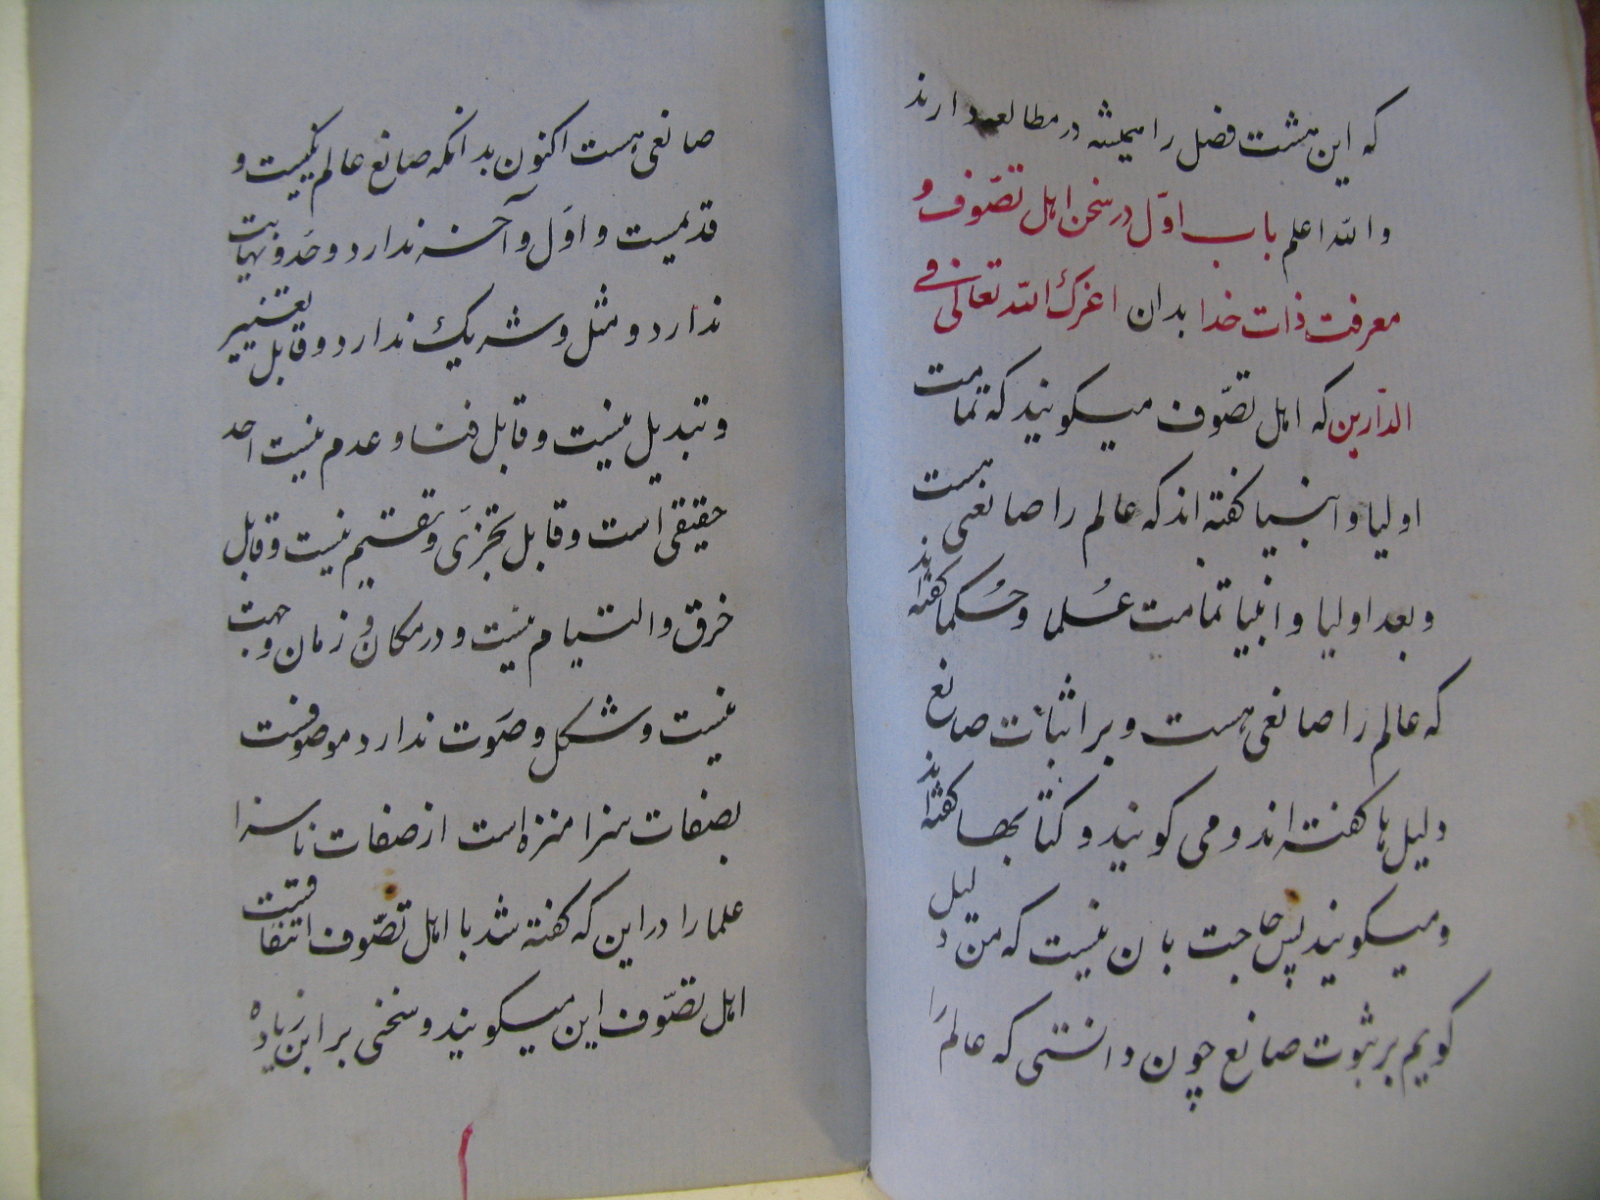 که این هشت فصل را همیشه در مطالعه دارند
والله اعلم باب اوّل در سخن اهل تصّوف و
معرفت ذات خدا بدان اعزک الله تعالی فی
الدّارین که اهل تصّوف میکویند که تمامت
اولیا و انبیا کفته اند که عالم را صانعی هست
و بعد اولیا و انبیا تمامت عُلما و حُکما کفته اند
که عالم را صانعی هست و بر اثبات صانع
دلیل ها کفته اند و می کویند و کتابها کفته اند
و میکویند پس حاجت بان نیست که من دلیل
کویم بر ثبوت صانع چون دانستی که عالم را
صانعی هست اکنون بدانکه صانع عالم یکیست و
قدیمست و اوّل و آخر ندارد و حَد و نهایت
ندارد و مثل و شریک ندارد و قابل تغییر
و تبدیل نیست و قابل فنا و عدم نیست احد
حقیقی است و قابل تجزّی و تقسیم نیست و قابل
خرق و التیام نیست و در مکان و زمان و جهت
نیست و شکل و صَوت ندارد موصوفست
بصفات سزا منزه است از صفات ناسزا
علما را در این که کفته شد با اهل تصّوف اتفاقست
اهل تصّوف این میکویند و سخنی بر این زیاده